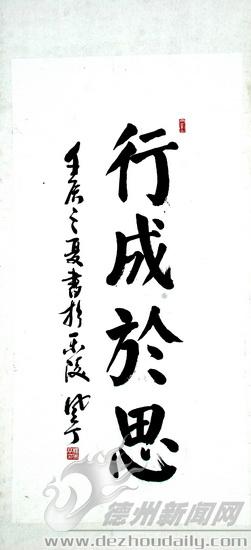 行成於思
壬辰之夏書於乐陵
德州新闻网
www.dezhoudaily.com